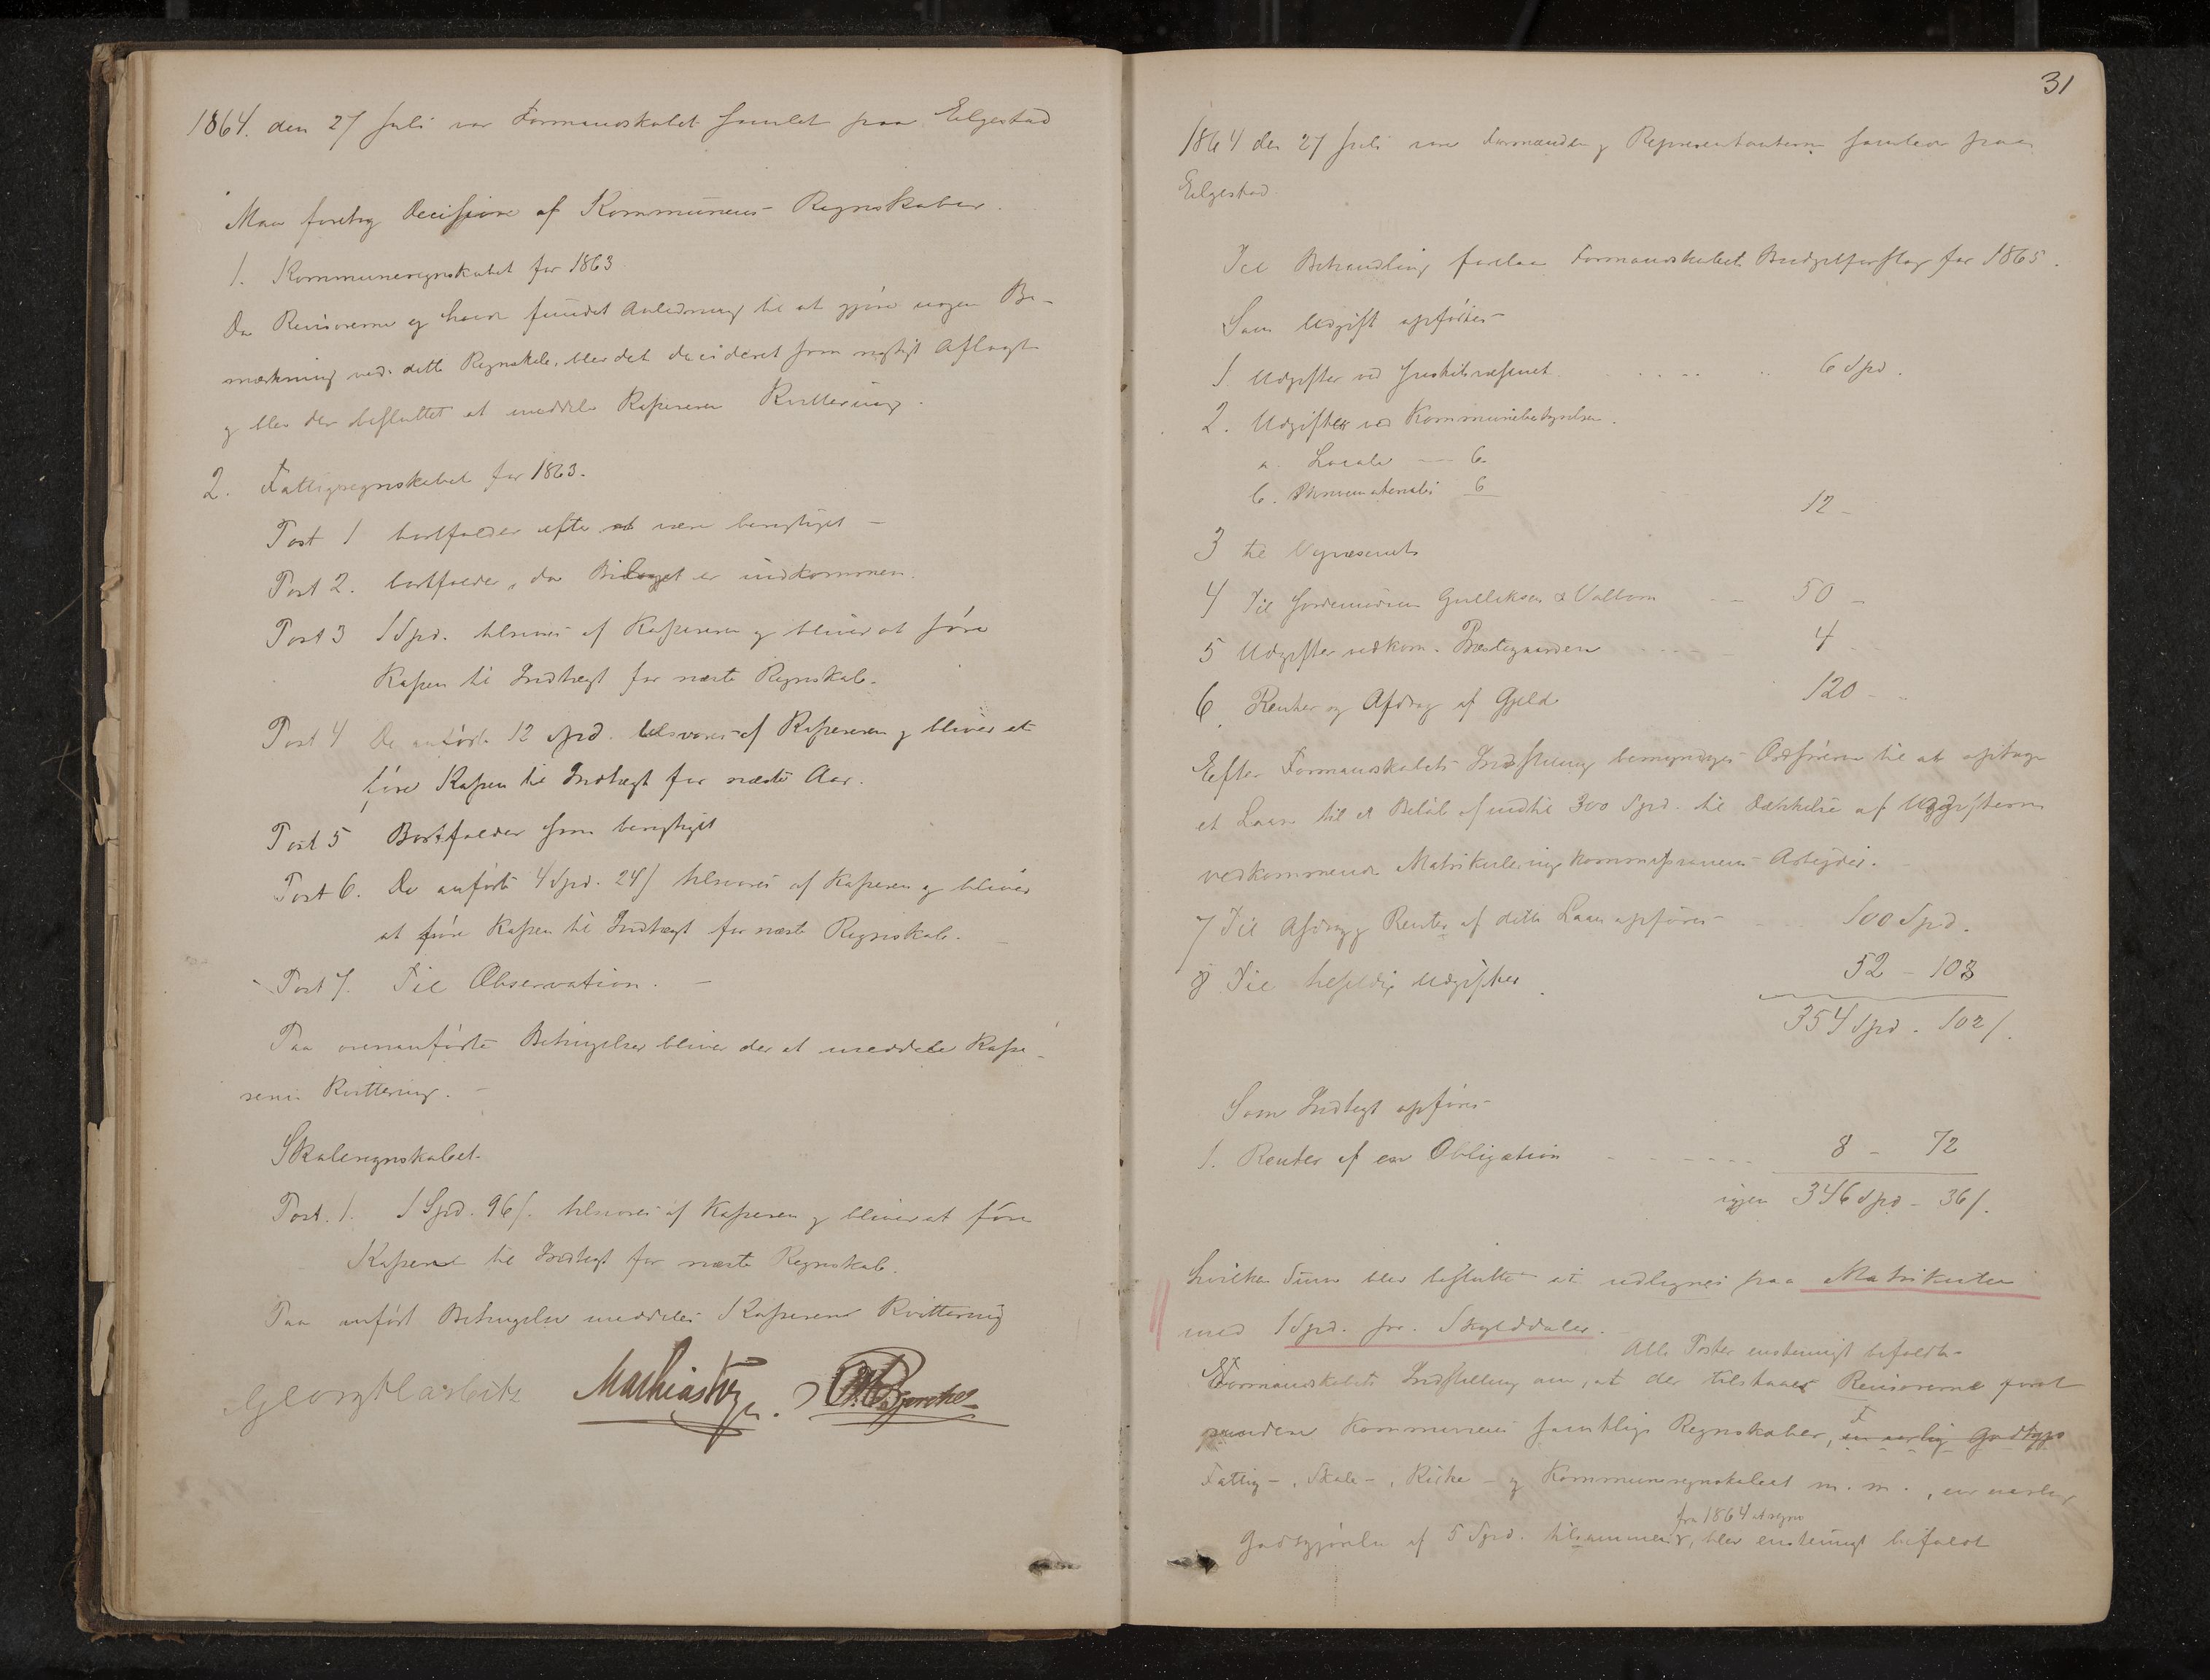 1864. den 27 Juli var Formandskabet samlet paa Eelgestad
Man foretog Decisione af Kommunens Regnskaber.
1. Kommuneregnskabet for 1863
Da Revisorerne ej havde fundet Anledning til at gjøre nogen Be-
mærkning ved dette Regnskab, blev det decideret som rigtigt Aflagt
og blev der besluttet at meddele Kasseren Kvittering.
2. Fattigregnskabet for 1863.
Post 1 bortfalder efter at være berigtiget -
Post 2. bortfalder, da Bilaget er indkommen.
Post 3 1 Spd. tilsvares af Kasseren og bliver at føre
Kassen til Indtægt for næste Regnskab.
Post 4 De anførte 12 Spd. tilsvares af Kassereren og bliver at
føre Kassen til Indtægt for næste Aar.
Post 5 Bortfalder som berigtiget
Post 6. De anførte 4 Spd. 24 s tilsvares af Kasseren og bliver
at føre Kassen til Indtægt for næste Regnskab. -
Post 7. Til Observation. -
Paa ovenanførte Betingelser bliver der at meddele Kasse-
reren Kvittering. -
Skoleregnskabet.
Post. 1. 1 Spd. 96 s. tilsvares af Kasseren og bliver at føre
Kassen til Indtægt for næste Regnskab.
Paa anført Betingelse meddeles Kasseren Kvittering
Mathias
31
1864 den 27 Juli vare Formændene og Repræsentanterne samlede paa
Eelgestad.
Til Behandling forelaa Formandskabets Budgetforslag for 1865.
Som Udgift opførtes
1 Udgifter ved Justitsvæsenet 6 Spd.
2. Udgifter ved Kommunebestyrelsen.
a. Locale 6
b. Skrivematerialer 6
12 -
3 til Vejvæsenet
4 Til Jordemødrene Gulliksen & Valborn 50 -
5 Udgifter vedkom. Præstegaarden 4
6. Renter og Afdrag af Gjeld 120 -
Efter Formandskabets Indstilling bemyndiges Ordføreren til at optage
et Laan til et Beløb af indtil 300 Spd. til Dækkelse af Udgifterne
vedkommende Matrikuleringskommissionens Arbejder.
7 Til Afdrag og Renter af dette Laan opføres 100 Spd.
8 Til tilfældige Udgifter 52 - 108
354 Spd. 102 s.
Som Indtægt opføres
1. Renter af en Obligation 8 - 72
igjen 346 Spd - 36 s.
hvilken Sum blev besluttet at udlignes paa Matrikulen
med 1 Spd. pr. Skylddaler.
Alle Poster enstemmigt bifaldte
Formandskabets Indstilling om, at der tilstaaes Revisorerne
Kommunens samtlige Regnskaber, en aarlig Godtgjø
Fattig-, Skole-, Kirke- og Kommuneregnskabet m. m., en aarlig
fra 1864 at regne
Godtgjørelse af 5 Spd. tilsammen, blev enstemmigt bifaldt